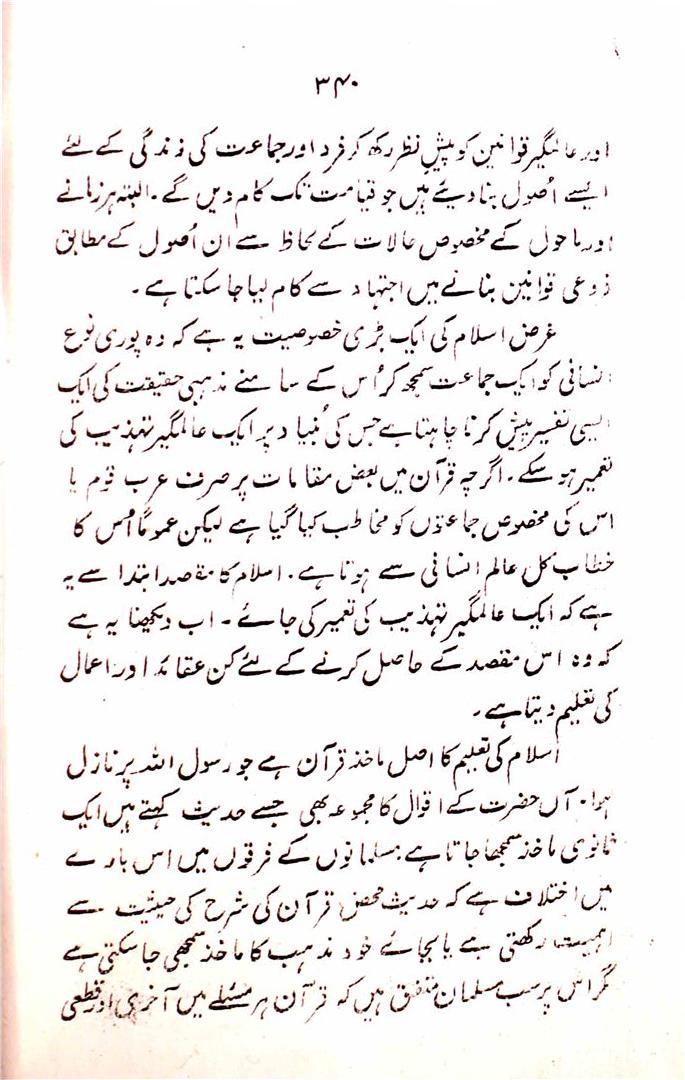 ۳۴۰
اور عالمگیر قوانین کو پیشِ نظر رکھ کر فرد اور جماعت کی زندگی کے لئے
ایسے اُصول بنا دیئے ہیں جو قیامت تک کام دیں گے۔ البتہ ہر زمانے
اور ماحول کے مخصوص حالات کے لحاظ سے اُن اُصول کے مطابق
فروعی قوانین بنانے میں اجتہاد سے کام لیا جا سکتا ہے۔
غرض اسلام کی ایک بڑی خصوصیت یہ ہے کہ وہ پوری نوعِ
انسانی کو ایک جماعت سمجھ کر اُس کے سامنے مذہبی حقیقت کی ایک
ایسی تفسیر پیش کرنا چاہتا ہے جس کی بُنیاد پر ایک عالمگیر تہذیب کی
تعمیر ہو سکے۔ اگرچہ قرآن میں بعض مقامات پر صرف عرب قوم یا
اس کی مخصوص جماعتوں کو مخاطب کیا گیا ہے لیکن عموماً اُس کا
خطاب کُل عالم انسانی سے ہوتا ہے۔ اسلام کا مقصد ابتدا سے یہ
ہے کہ ایک عالمگیر تہذیب کی تعمیر کی جائے۔ اب دیکھنا یہ ہے
کہ وہ اس مقصد کے حاصل کرنے کے لئے کن عقائد اور اعمال
کی تعلیم دیتا ہے۔
اسلام کی تعلیم کا اصل ماخذ قرآن ہے جو رسول اللہ پر نازل
ہوا۔ آں حضرت کے اقوال کا مجموعہ بھی جسے حدیث کہتے ہیں ایک
ثانوی ماخذ سمجھا جاتا ہے۔ مسلمانوں کے فرقوں میں اس بارے
میں اختلاف ہے کہ حدیث محض قرآن کی شرح کی حیثیت سے
اہمیت رکھتی ہے یا بجائے خود مذہب کا ماخذ سمجھی جا سکتی ہے
مگر اس پر سب مسلمان متفق ہیں کہ قرآن ہر مسئلے میں آخری اور قطعی